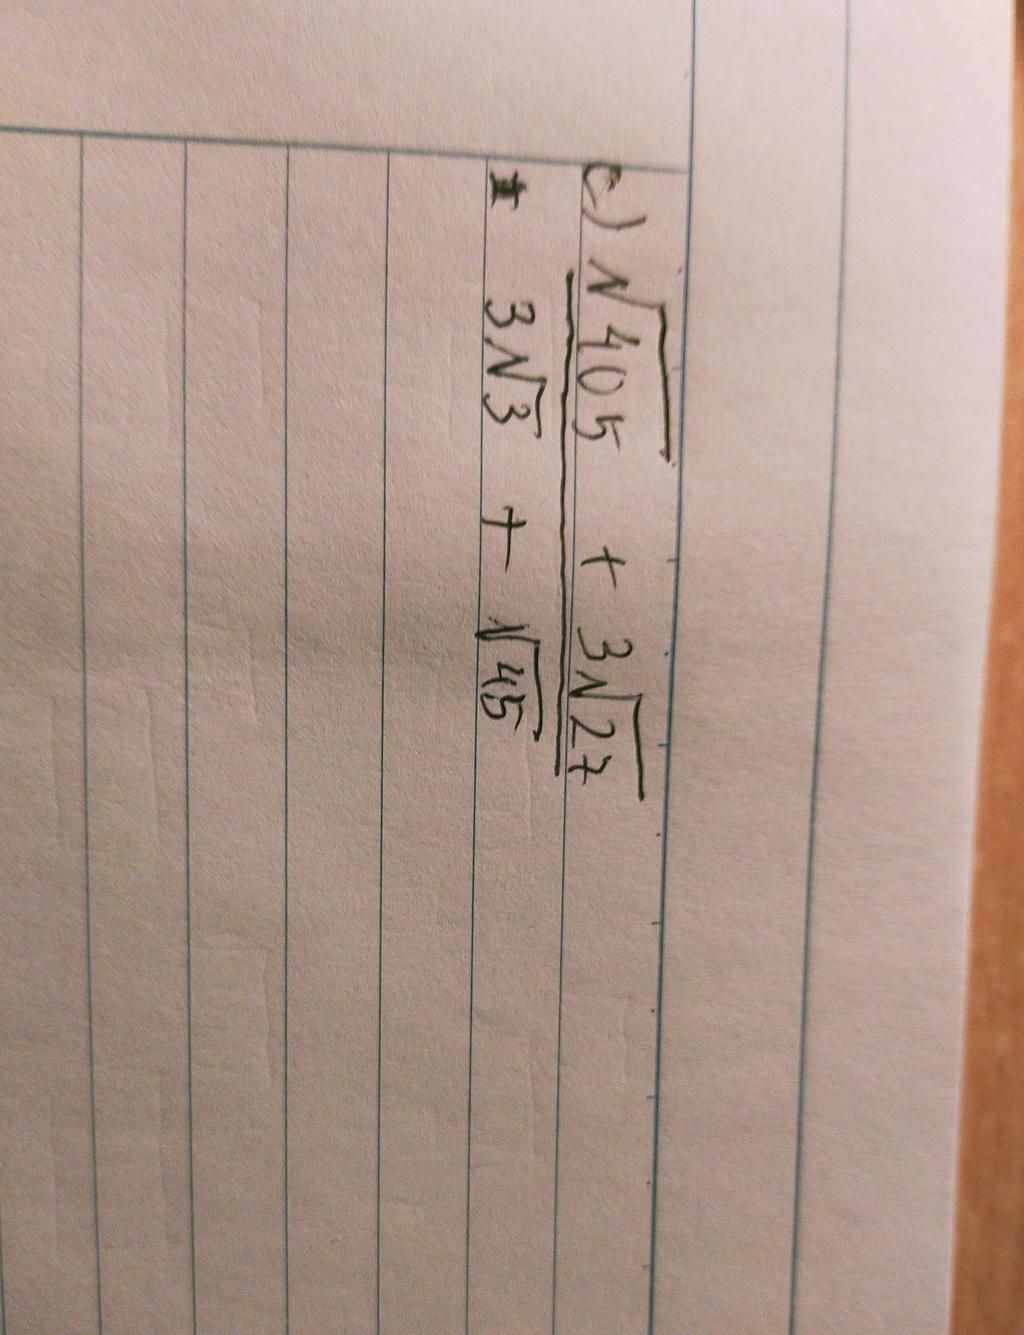 c) √405 + 3√27
3√3 + √45